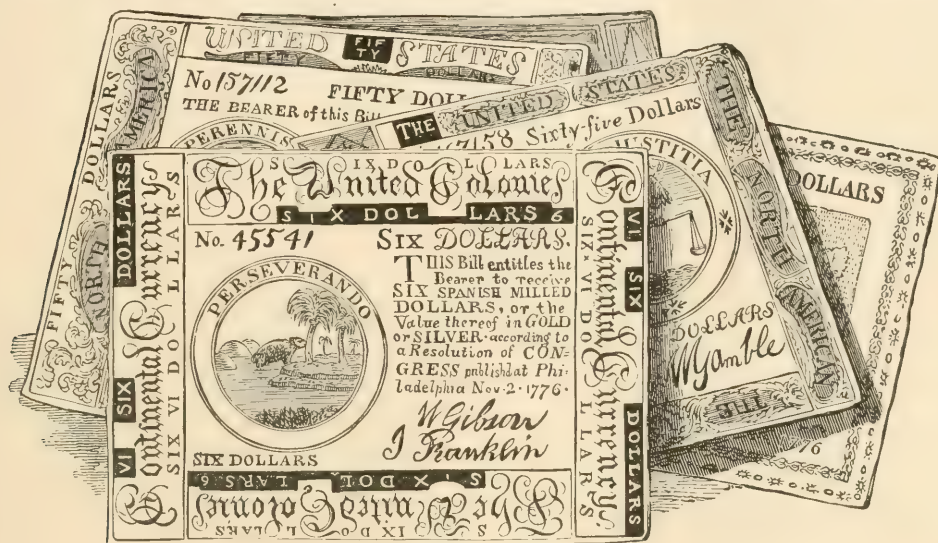 UNITED FIF TY STATES
FIFTY DOLLARS
No 157112
FIFTY DOLL
THE BEARER of this Bill
PERENNIS
FIFTY DOLLARS
NORTH AMERICA
THE UNITED STATES
7158 Sixty-five Dollars
JUSTITIA
DOLLARS
WGamble
THE NORTH AMERICAN
THE
DOLLARS
76
SIX DOLLARS
The United Colonies
SIX DOLLARS 6
No. 45541
SIX DOLLARS.
THIS Bill entitles the
Bearer to receive
SIX SPANISH MILLED
DOLLARS, or the
Value thereof in GOLD
or SILVER according to
a Resolution of CON-
GRESS publishd at Phi-
ladelphia Nov. 2. 1776.
PERSEVERANDO
W Gibson
J Franklin
SIX DOLLARS
VI SIX DOLLARS
Continental Currency
SIX VI DOLLARS
VI SIX DOLLARS
Continental Currency
SIX VI DOLLARS
SIX DOLLARS 6
The United Colonies
SIX DOLLARS